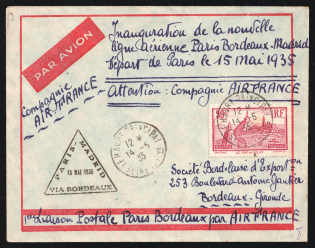 Inauguration de la nouvelle
ligne aérienne Paris Bordeaux-Madrid
PAR AVION
départ de Paris le 15 Mai 1935
Compagnie
AIR FRANCE
Attention: Compagnie AIR FRANCE
12*
14-5
35
RF
PARIS MADRID
15 MAI 1935
VIA BORDEAUX
12*
14-5
35
Société Bordelaise d'Export on
253 Boulevard Antoine Gautier
Bordeaux - Gironde
1re Liaison Postale Paris Bordeaux par AIR FRANCE